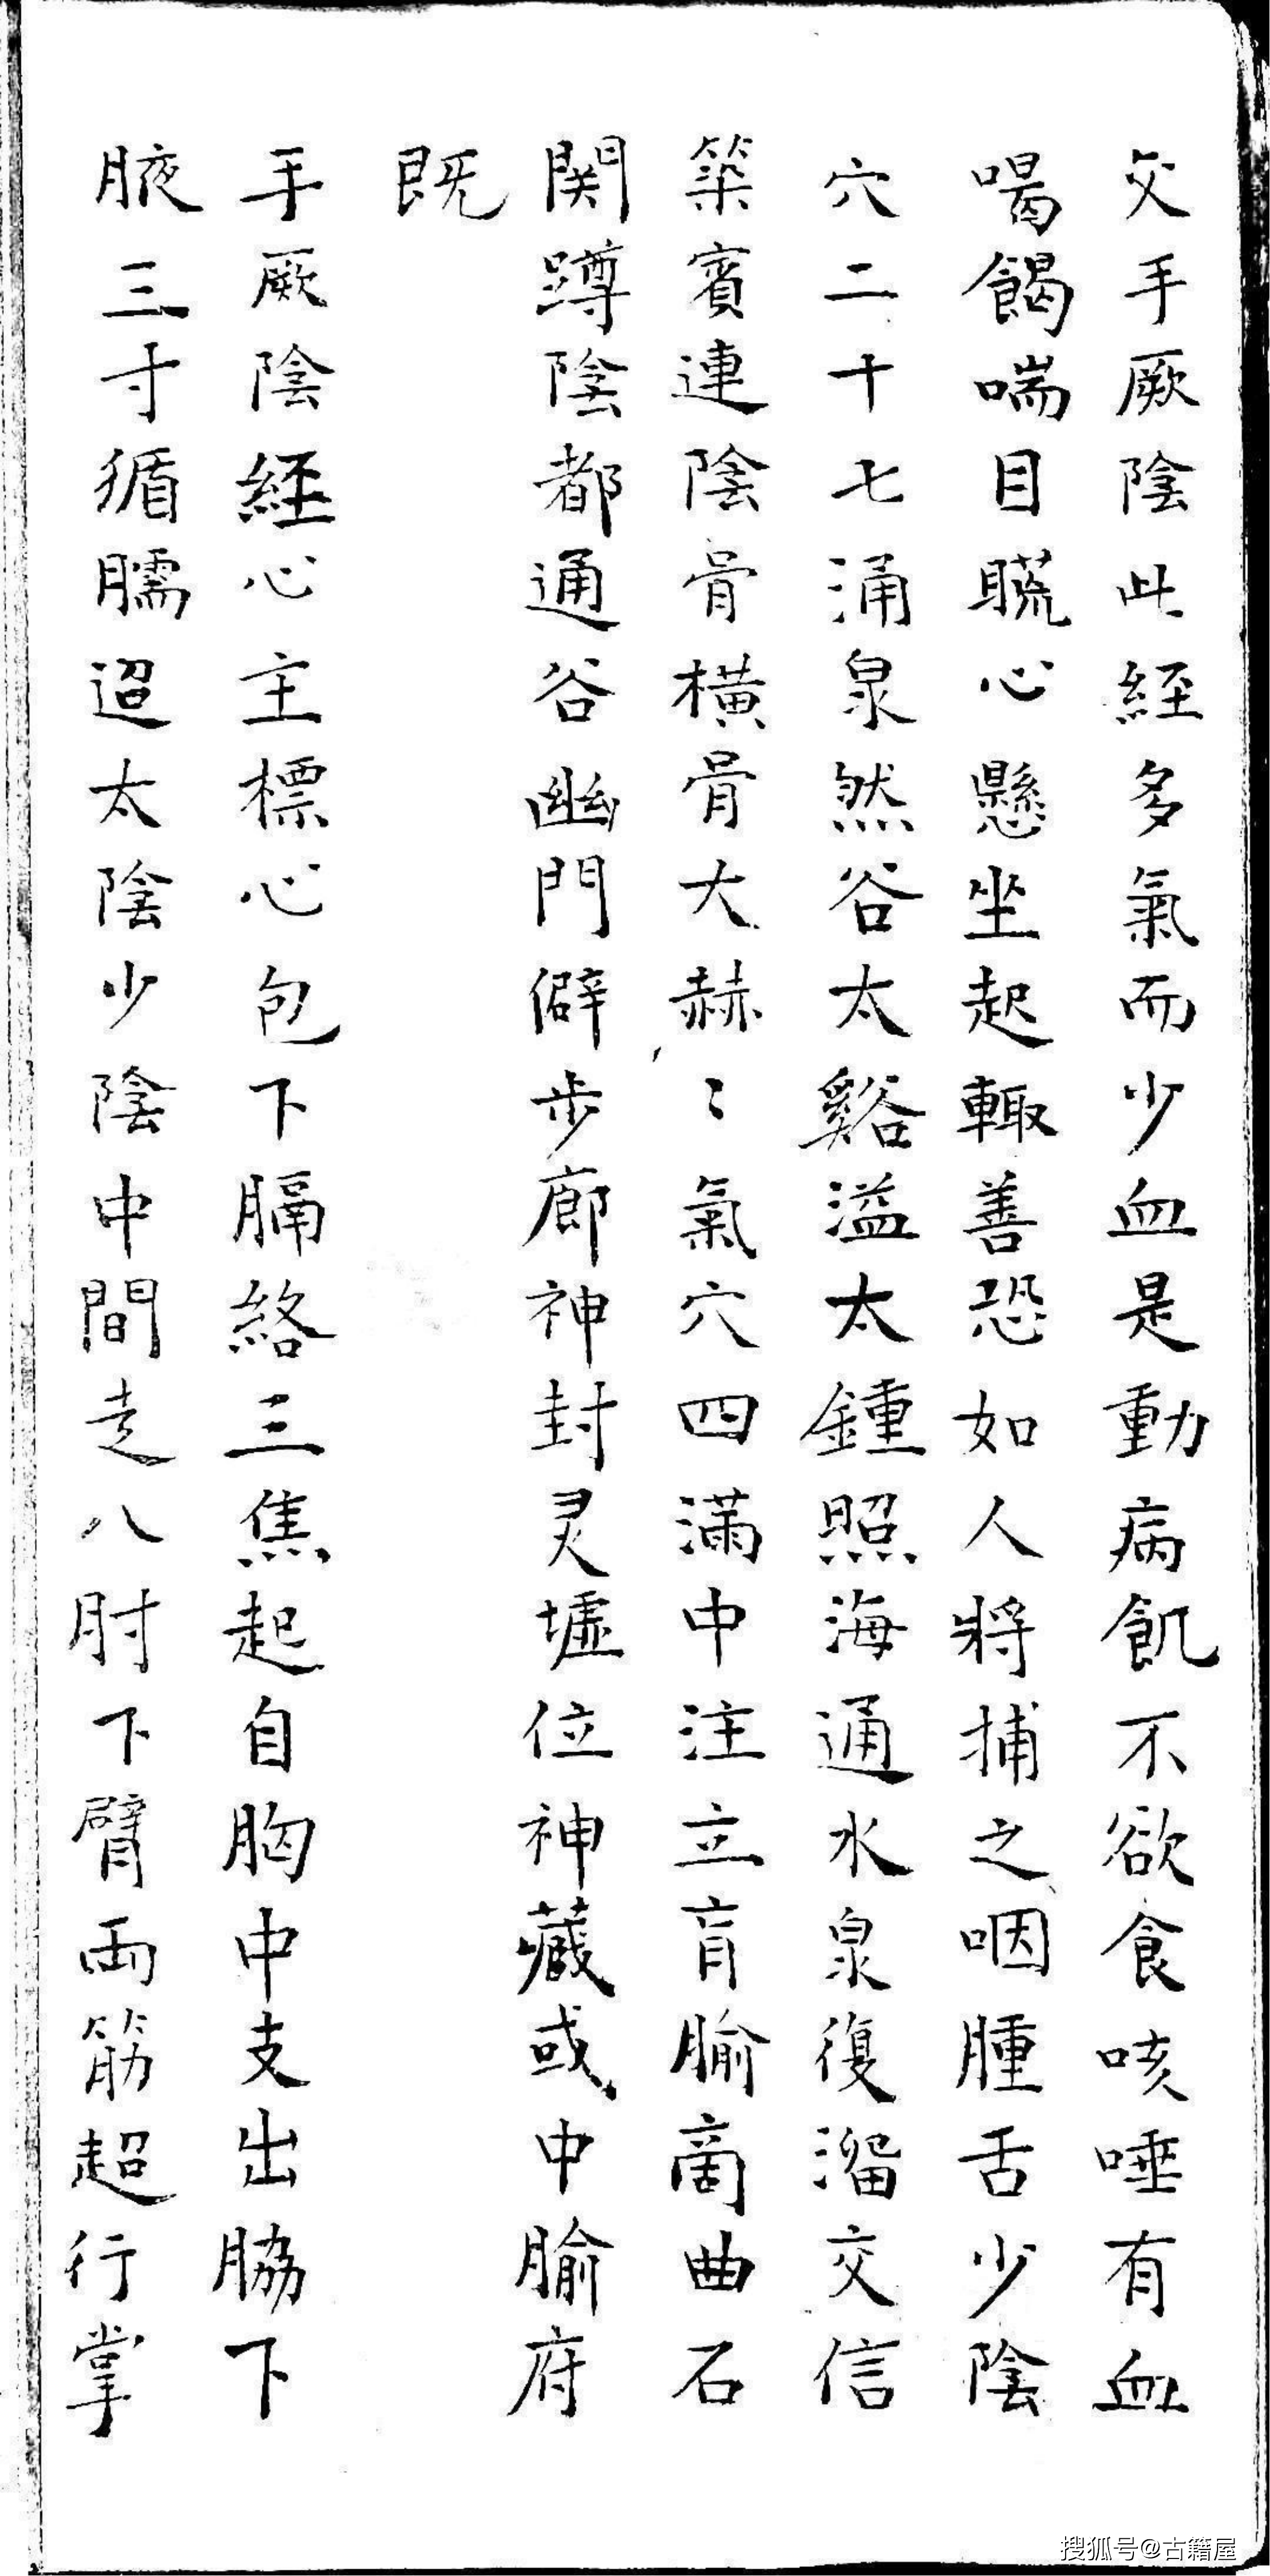 交手厥陰此経多氣而少血是動病飢不欲食咳唾有血
喝餲喘目䀮心懸坐起輙善恐如人將捕之咽腫舌少陰
穴二十七涌泉然谷太谿溢太鍾照海通水泉復溜交信
築賓連陰骨橫骨大赫〻氣穴四滿中注立肓腧商曲石
関蹲陰都通谷幽門僻步廊神封灵墟位神藏或中腧府
既
手厥陰経心主標心包下膈絡三焦起自胸中支出脇下
腋三寸循臑迢太陰少陰中間走八肘下臂両筋超行掌
搜狐号@古籍屋